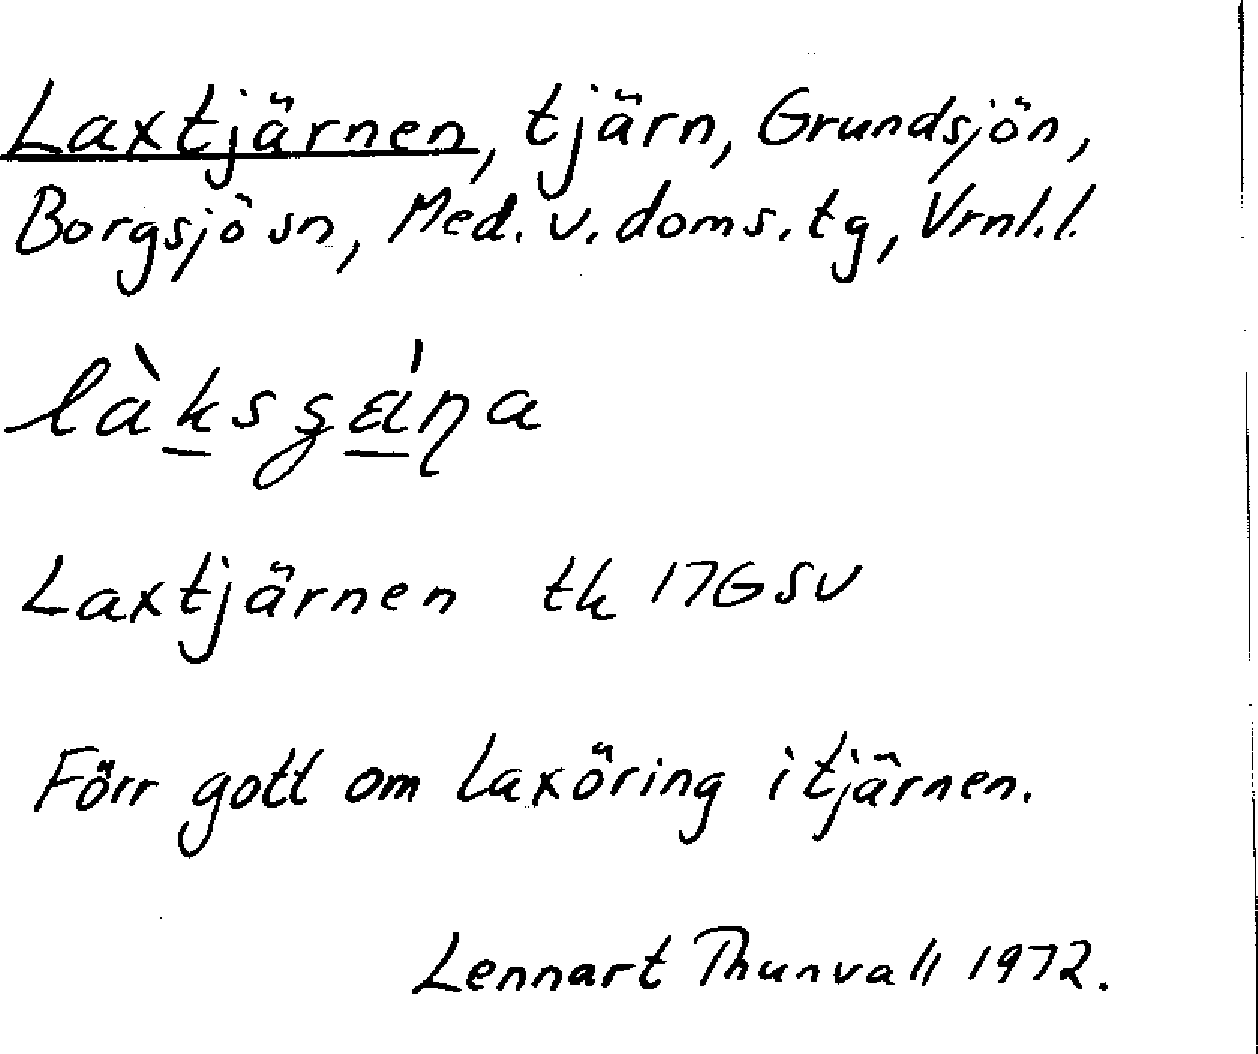 Laxtjärnen, tjärn, Grundsjön,
Borgsjö sn, Med. v. doms. tg, Vrnl. l.
Laxtjärnen tk 17G SV
Förr gott om laxöring i tjärnen.
Lennart Thunvall 1972.